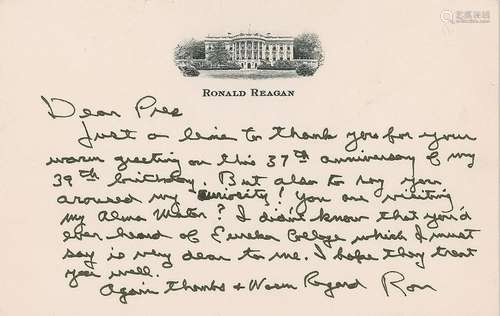 RONALD REAGAN
Dear Pres
Just a line to thank you for your
warm greeting on this 37th anniversary of my
39th birthday. But also to say you
aroused my curiosity! You are visiting
my Alma Mater? I didn't know that you'd
ever heard of Eureka College which I must
say is very dear to me. I hope they treat
you well.
Again thanks & Warm Regard Ron